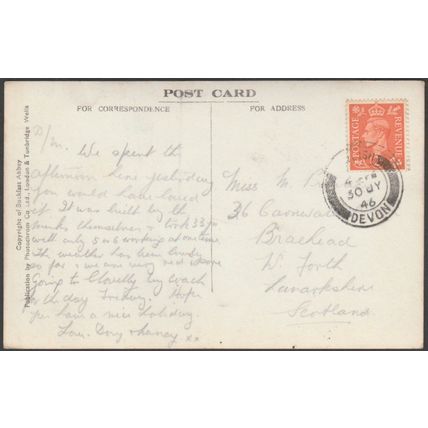 POST CARD
FOR CORRESPONDENCE
FOR ADDRESS
Copyright of Buckfast Abbey
Publication by Photochrom Co. Ltd., London & Tunbridge Wells
D/m. We spent the
afternoon here yesterday
you would have loved
it. It was built by the
monks themselves & took 33 yrs
with only 5 or 6 working at one time
The weather has been lovely
so far & we are very
going to Clovelly by coach
for the day Friday. Hope
you have a nice holiday.
Love. Dory & xx
Miss M.
36
Braehead
W. Forth
Lanarkshire
Scotland
POSTAGE
REVENUE
30 MY
46
DEVON